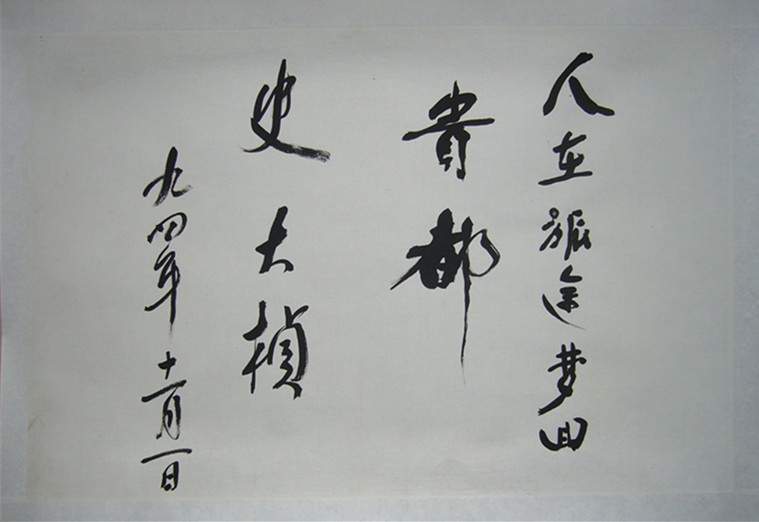 人在旅途梦回
贵都
史大楨
九四年十一月一日